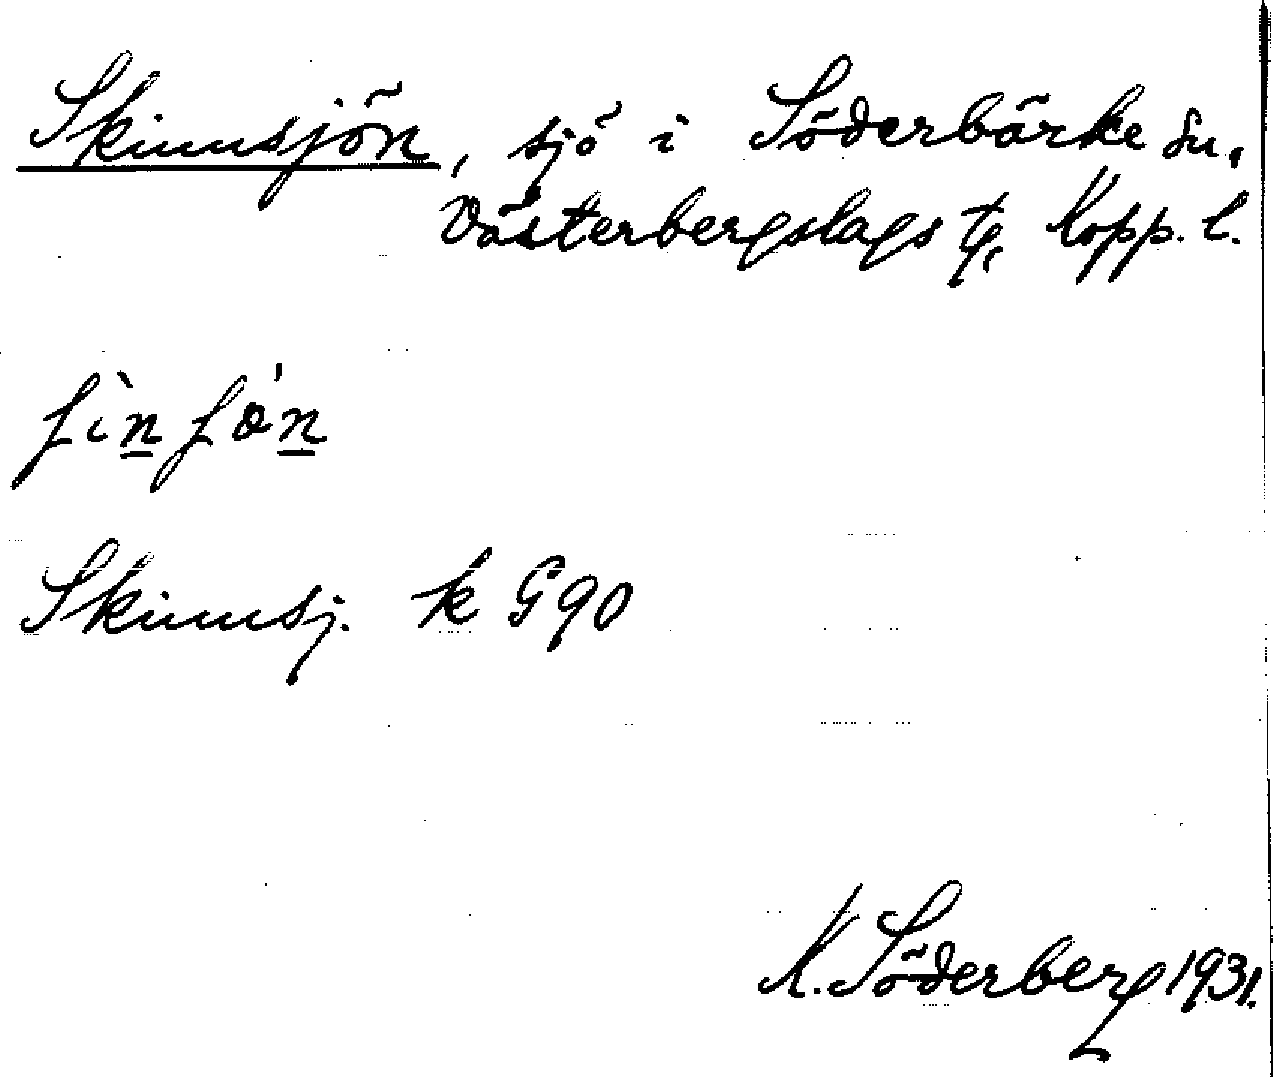 Skinnsjön, sjö i Söderbärke sn,
Västerbergslags tg, Kopp. l.
ʃìnʃø'n
Skinnsj. k G90
K. Söderberg 1931.